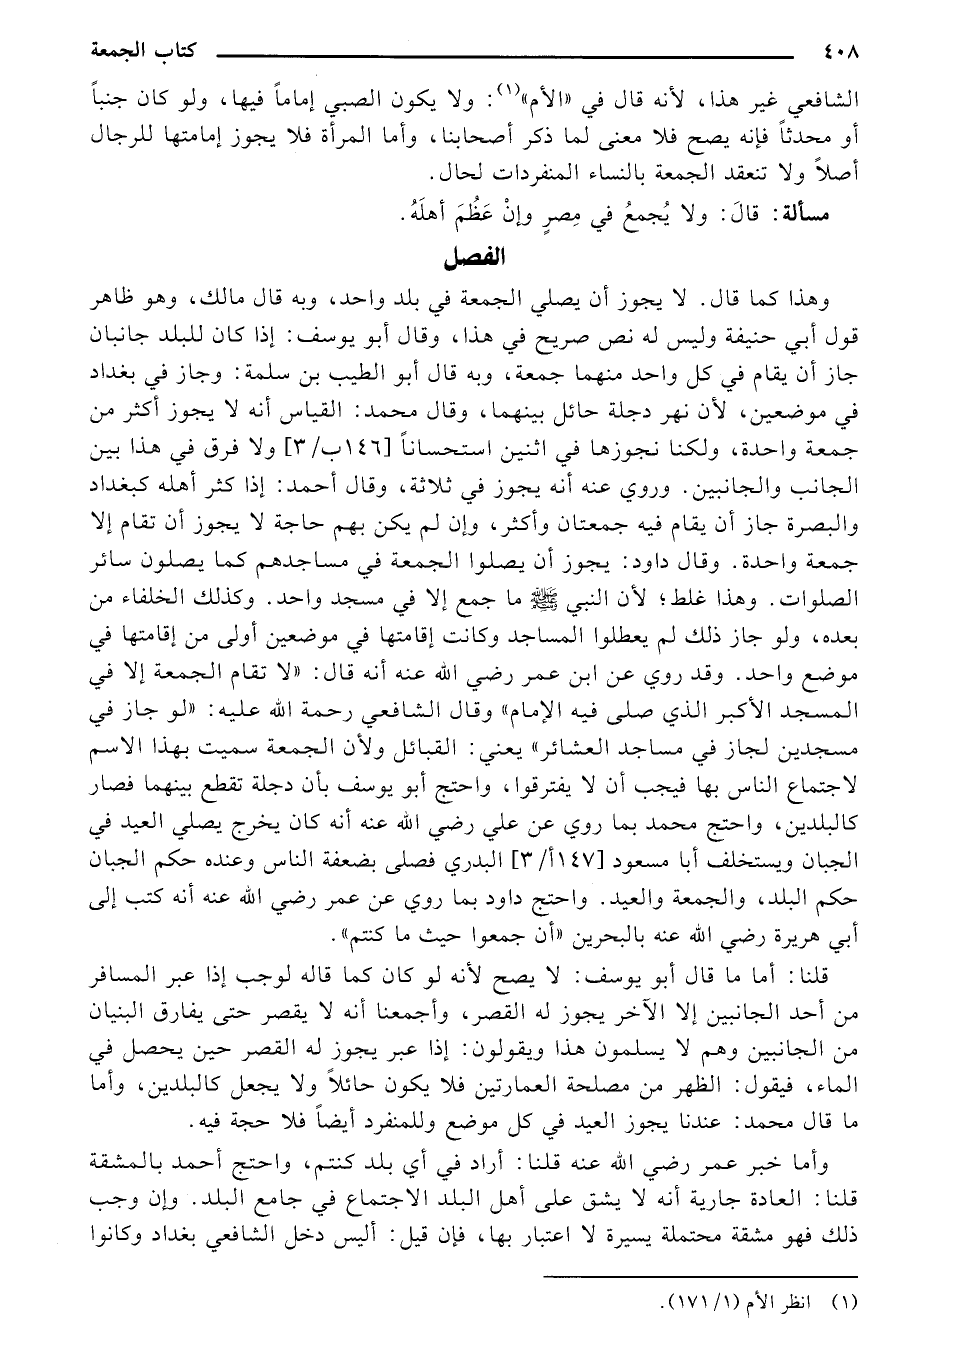 ٤٠٨ كتاب الجمعة
الشافعي غير هذا، لأنه قال في «الأم»(١): ولا يكون الصبي إماماً فيها، ولو كان جنباً
أو محدثاً فإنه يصح فلا معنى لما ذكر أصحابنا، وأما المرأة فلا يجوز إمامتها للرجال
أصلاً ولا تنعقد الجمعة بالنساء المنفردات لحال.
مسألة: قالَ: ولا يُجمعُ في مِصرٍ وإنْ عَظُمَ أهلَهُ.
الفصل
وهذا كما قال. لا يجوز أن يصلي الجمعة في بلد واحد، وبه قال مالك، وهو ظاهر
قول أبي حنيفة وليس له نص صريح في هذا، وقال أبو يوسف: إذا كان للبلد جانبان
جاز أن يقام في كل واحد منهما جمعة، وبه قال أبو الطيب بن سلمة: وجاز في بغداد
في موضعين، لأن نهر دجلة حائل بينهما، وقال محمد: القياس أنه لا يجوز أكثر من
جمعة واحدة، ولكنا نجوزها في اثنين استحساناً [١٤٦ب/ ٣] ولا فرق في هذا بين
الجانب والجانبين. وروي عنه أنه يجوز في ثلاثة، وقال أحمد: إذا كثر أهله كبغداد
والبصرة جاز أن يقام فيه جمعتان وأكثر، وإن لم يكن بهم حاجة لا يجوز أن تقام إلا
جمعة واحدة. وقال داود: يجوز أن يصلوا الجمعة في مساجدهم كما يصلون سائر
الصلوات. وهذا غلط؛ لأن النبي ﷺ ما جمع إلا في مسجد واحد. وكذلك الخلفاء من
بعده، ولو جاز ذلك لم يعطلوا المساجد وكانت إقامتها في موضعين أولى من إقامتها في
موضع واحد. وقد روي عن ابن عمر رضي الله عنه أنه قال: «لا تقام الجمعة إلا في
المسجد الأكبر الذي صلى فيه الإمام» وقال الشافعي رحمة الله عليه: «لو جاز في
مسجدين لجاز في مساجد العشائر» يعني: القبائل ولأن الجمعة سميت بهذا الاسم
لاجتماع الناس بها فيجب أن لا يفترقوا، واحتج أبو يوسف بأن دجلة تقطع بينهما فصار
كالبلدين، واحتج محمد بما روي عن علي رضي الله عنه أنه كان يخرج يصلي العيد في
الجبان ويستخلف أبا مسعود [١٤٧أ/ ٣] البدري فصلى بضعفة الناس وعنده حكم الجبان
حكم البلد، والجمعة والعيد. واحتج داود بما روي عن عمر رضي الله عنه أنه كتب إلى
أبي هريرة رضي الله عنه بالبحرين «أن جمعوا حيث ما كنتم».
قلنا: أما ما قال أبو يوسف: لا يصح لأنه لو كان كما قاله لوجب إذا عبر المسافر
من أحد الجانبين إلا الآخر يجوز له القصر، وأجمعنا أنه لا يقصر حتى يفارق البنيان
من الجانبين وهم لا يسلمون هذا ويقولون: إذا عبر يجوز له القصر حين يحصل في
الماء، فيقول: الظهر من مصلحة العمارتين فلا يكون حائلاً ولا يجعل كالبلدين، وأما
ما قال محمد: عندنا يجوز العيد في كل موضع وللمنفرد أيضاً فلا حجة فيه.
وأما خبر عمر رضي الله عنه قلنا: أراد في أي بلد كنتم، واحتج أحمد بالمشقة
قلنا: العادة جارية أنه لا يشق على أهل البلد الاجتماع في جامع البلد. وإن وجب
ذلك فهو مشقة محتملة يسيرة لا اعتبار بها، فإن قيل: أليس دخل الشافعي بغداد وكانوا
(١) انظر الأم (١/ ١٧١).